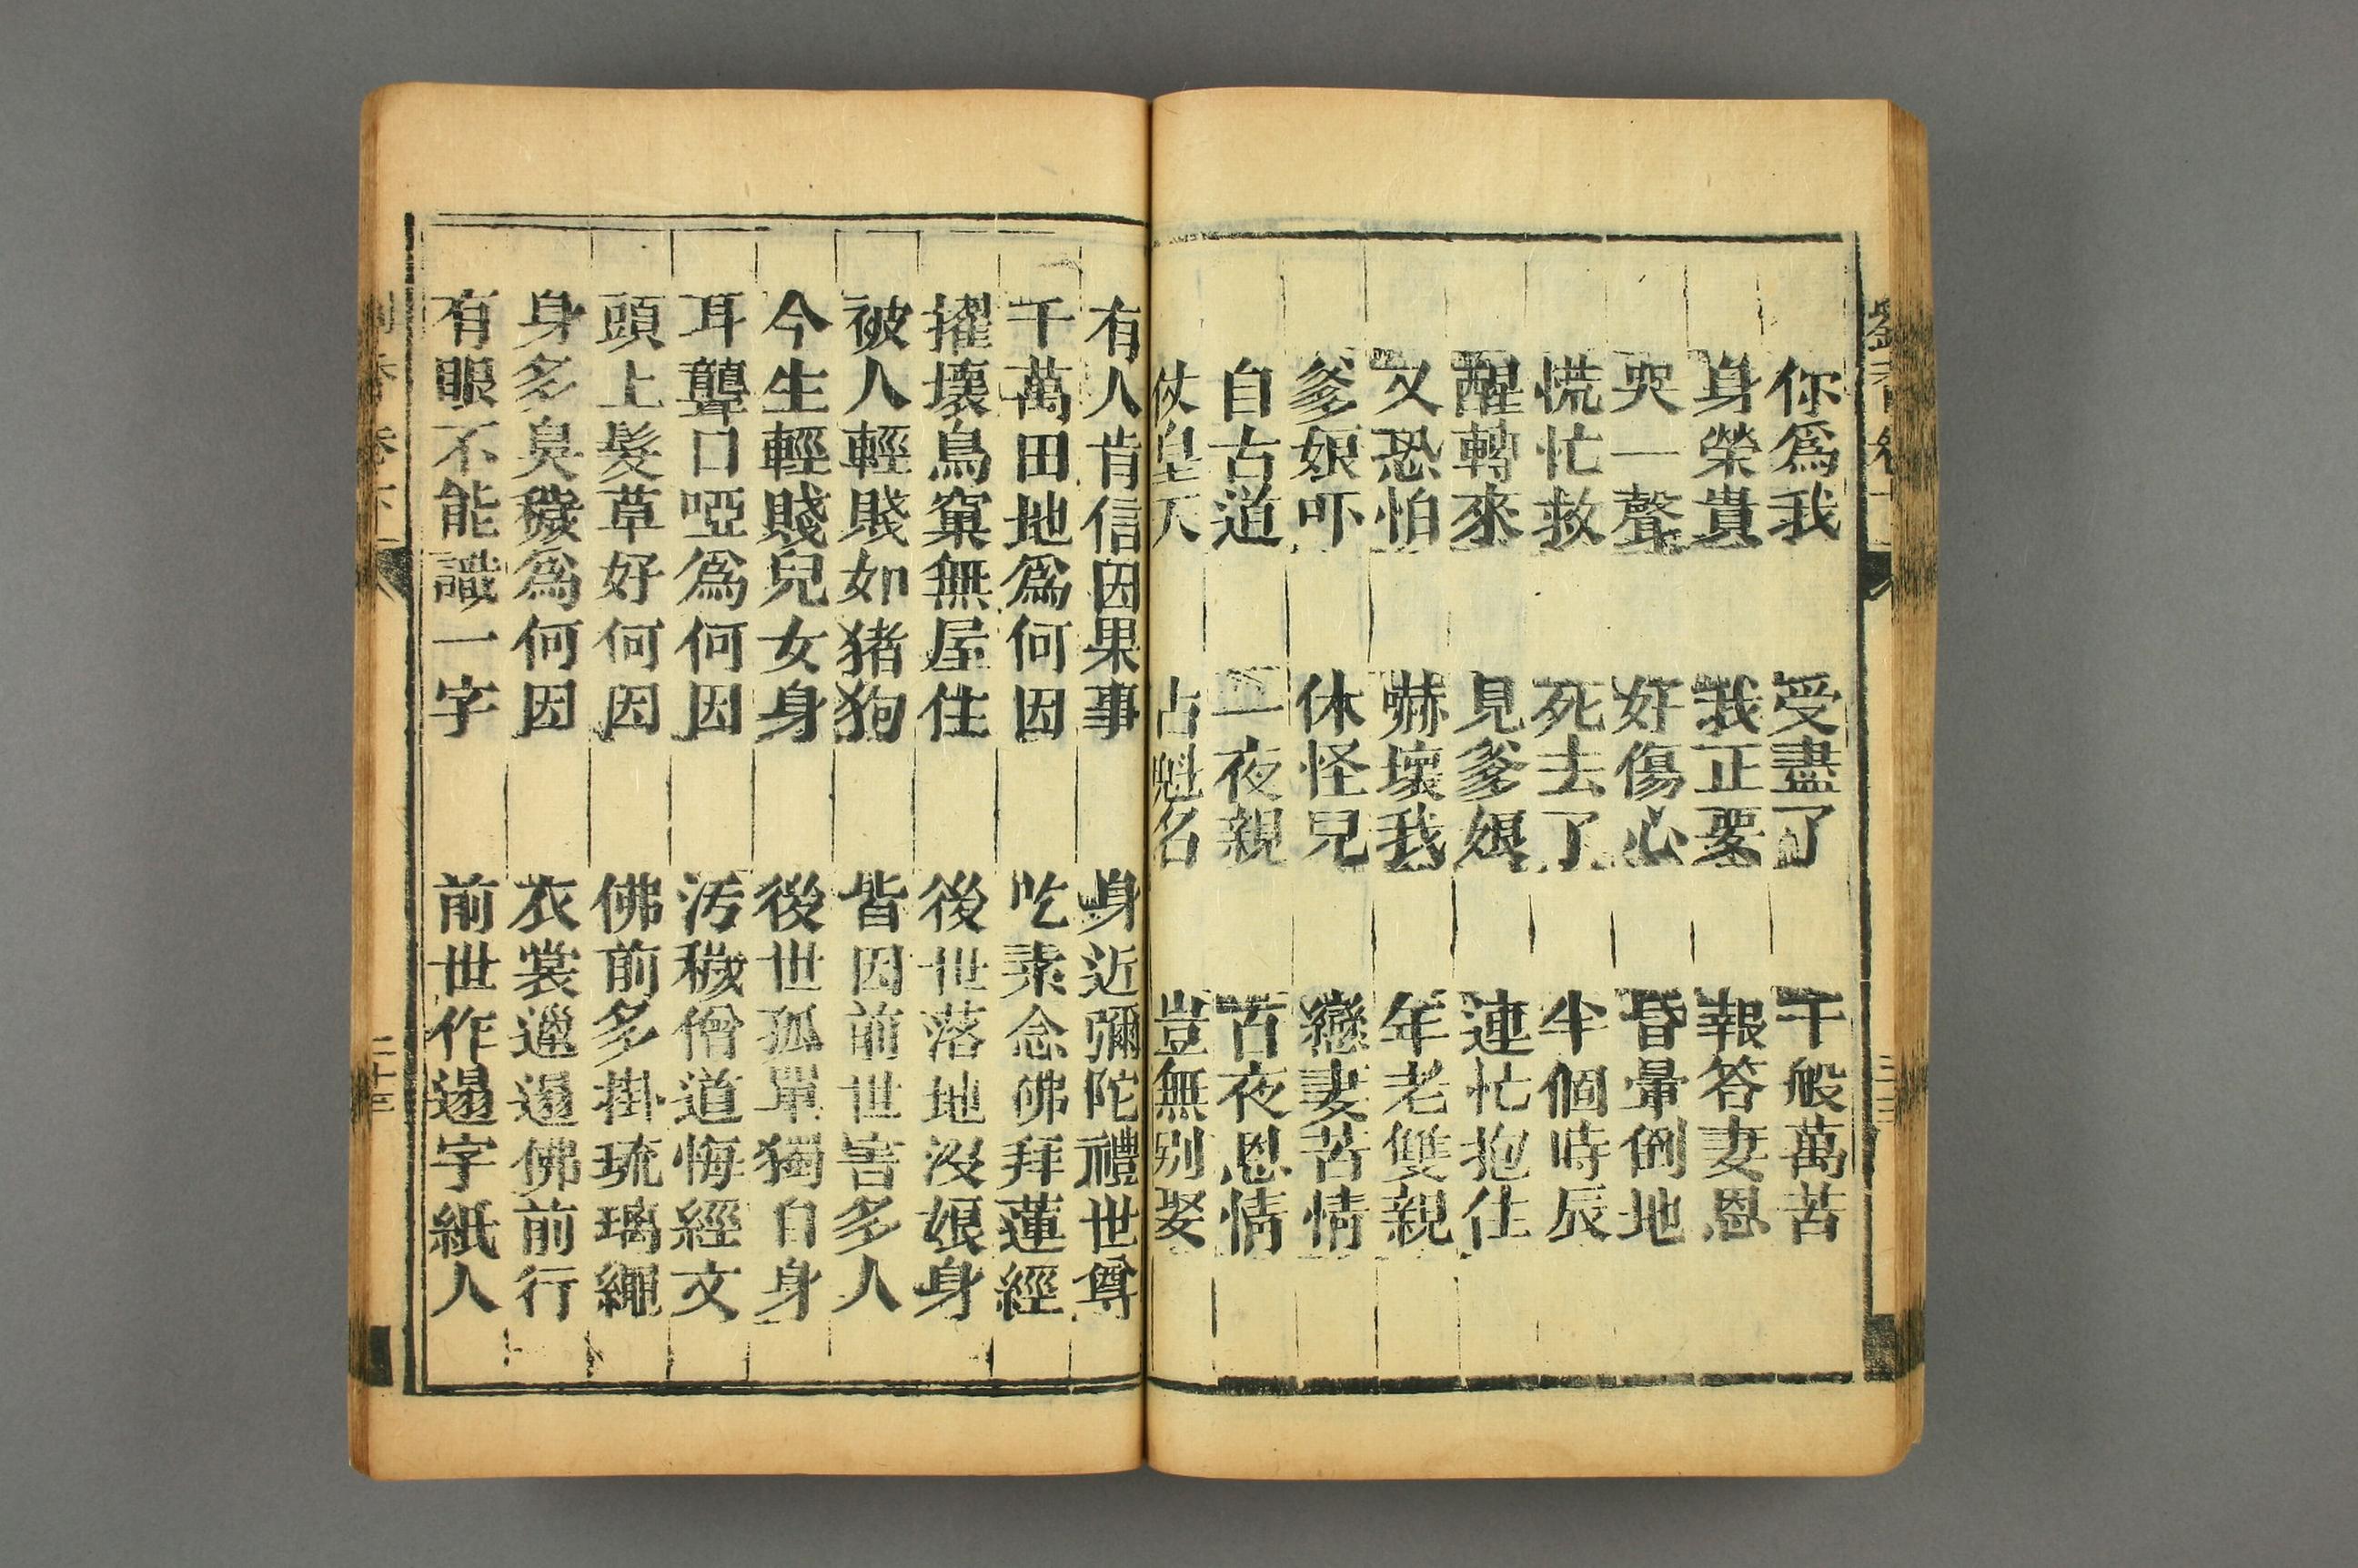 你爲我　受盡了　千般萬苦
身榮貴　我正要　報答妻恩
哭一聲　好傷心　昏暈倒地
慌忙救　死去了　半個時辰
醒轉來　見爹娘　連忙抱住
又恐怕　嚇壞我　年老雙親
爹娘吓　休怪兒　戀妻苦情
自古道　一夜親　百夜恩情
仗皇天　占魁名　豈無別娶
有人肯信因果事　身近彌陀禮世尊
千萬田地爲何因　吃素念佛拜蓮經
擢壞鳥窠無屋住　後世落地沒娘身
被人輕賤如猪狗　皆因前世害多人
今生輕賤兒女身　後世孤單獨自身
耳聾口啞爲何因　污穢僧道悔經文
頭上髮草好何因　佛前多掛琉璃繩
身多臭穢爲何因　衣裳邋遢佛前行
有眼不能識一字　前世作遢字紙人
二十三